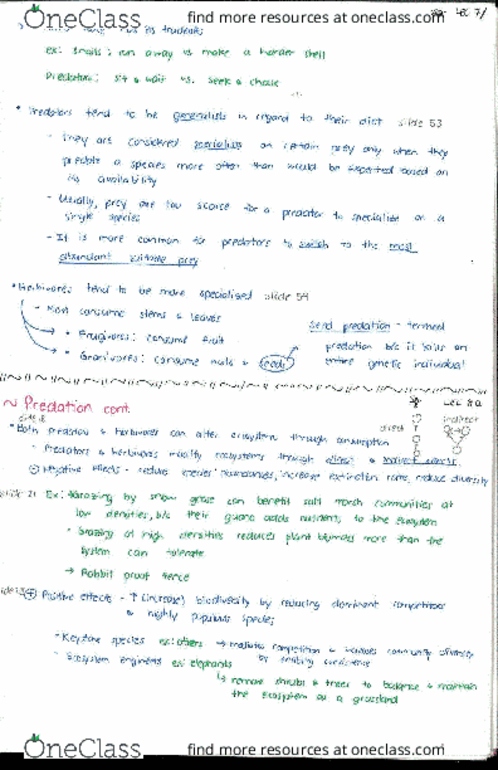 OneClass
find more resources at oneclass.com
ex: snails: run away vs make a harder shell
Predators: sit & wait vs. seek & chase
• Predators tend to be generalists in regard to their diet slide 53
- They are considered specialists on certain prey only when they
predate a species more often than would be expected based on
its availability
- Usually, prey are too scarce for a predator to specialise on a
single species
- It is more common for predators to switch to the most
abundant suitable prey
• Herbivores tend to be more specialised slide 54
- Most consume stems & leaves
• Frugivores: consume fruit
• Granivores: consume nuts & seeds
Seed predation - termed
predation b/c it kills an
entire genetic individual
~ Predation cont.
• Both predators & herbivores can alter ecosystem through consumption
direct
indirect
• Predators & herbivores modify ecosystems through direct & indirect effects
- Negative effects - reduce species' abundances, increase extinction rates, reduce diversity
slide 21 Ex: Grazing by snow geese can benefit salt marsh communities at
low densities, b/c their guano adds nutrients to the ecosystem
• Grazing at high densities reduces plant biomass more than the
system can tolerate
→ Rabbit proof fence
+ Positive effects - ↑ (increase) biodiversity by reducing dominant competitors
& highly populous species
• Keystone species ex: otters → mediates competition & increases community diversity
by enabling coexistence
• Ecosystem engineers ex: elephants
↳ remove shrubs & trees to balance & maintain
the ecosystem as a grassland
OneClass
find more resources at oneclass.com